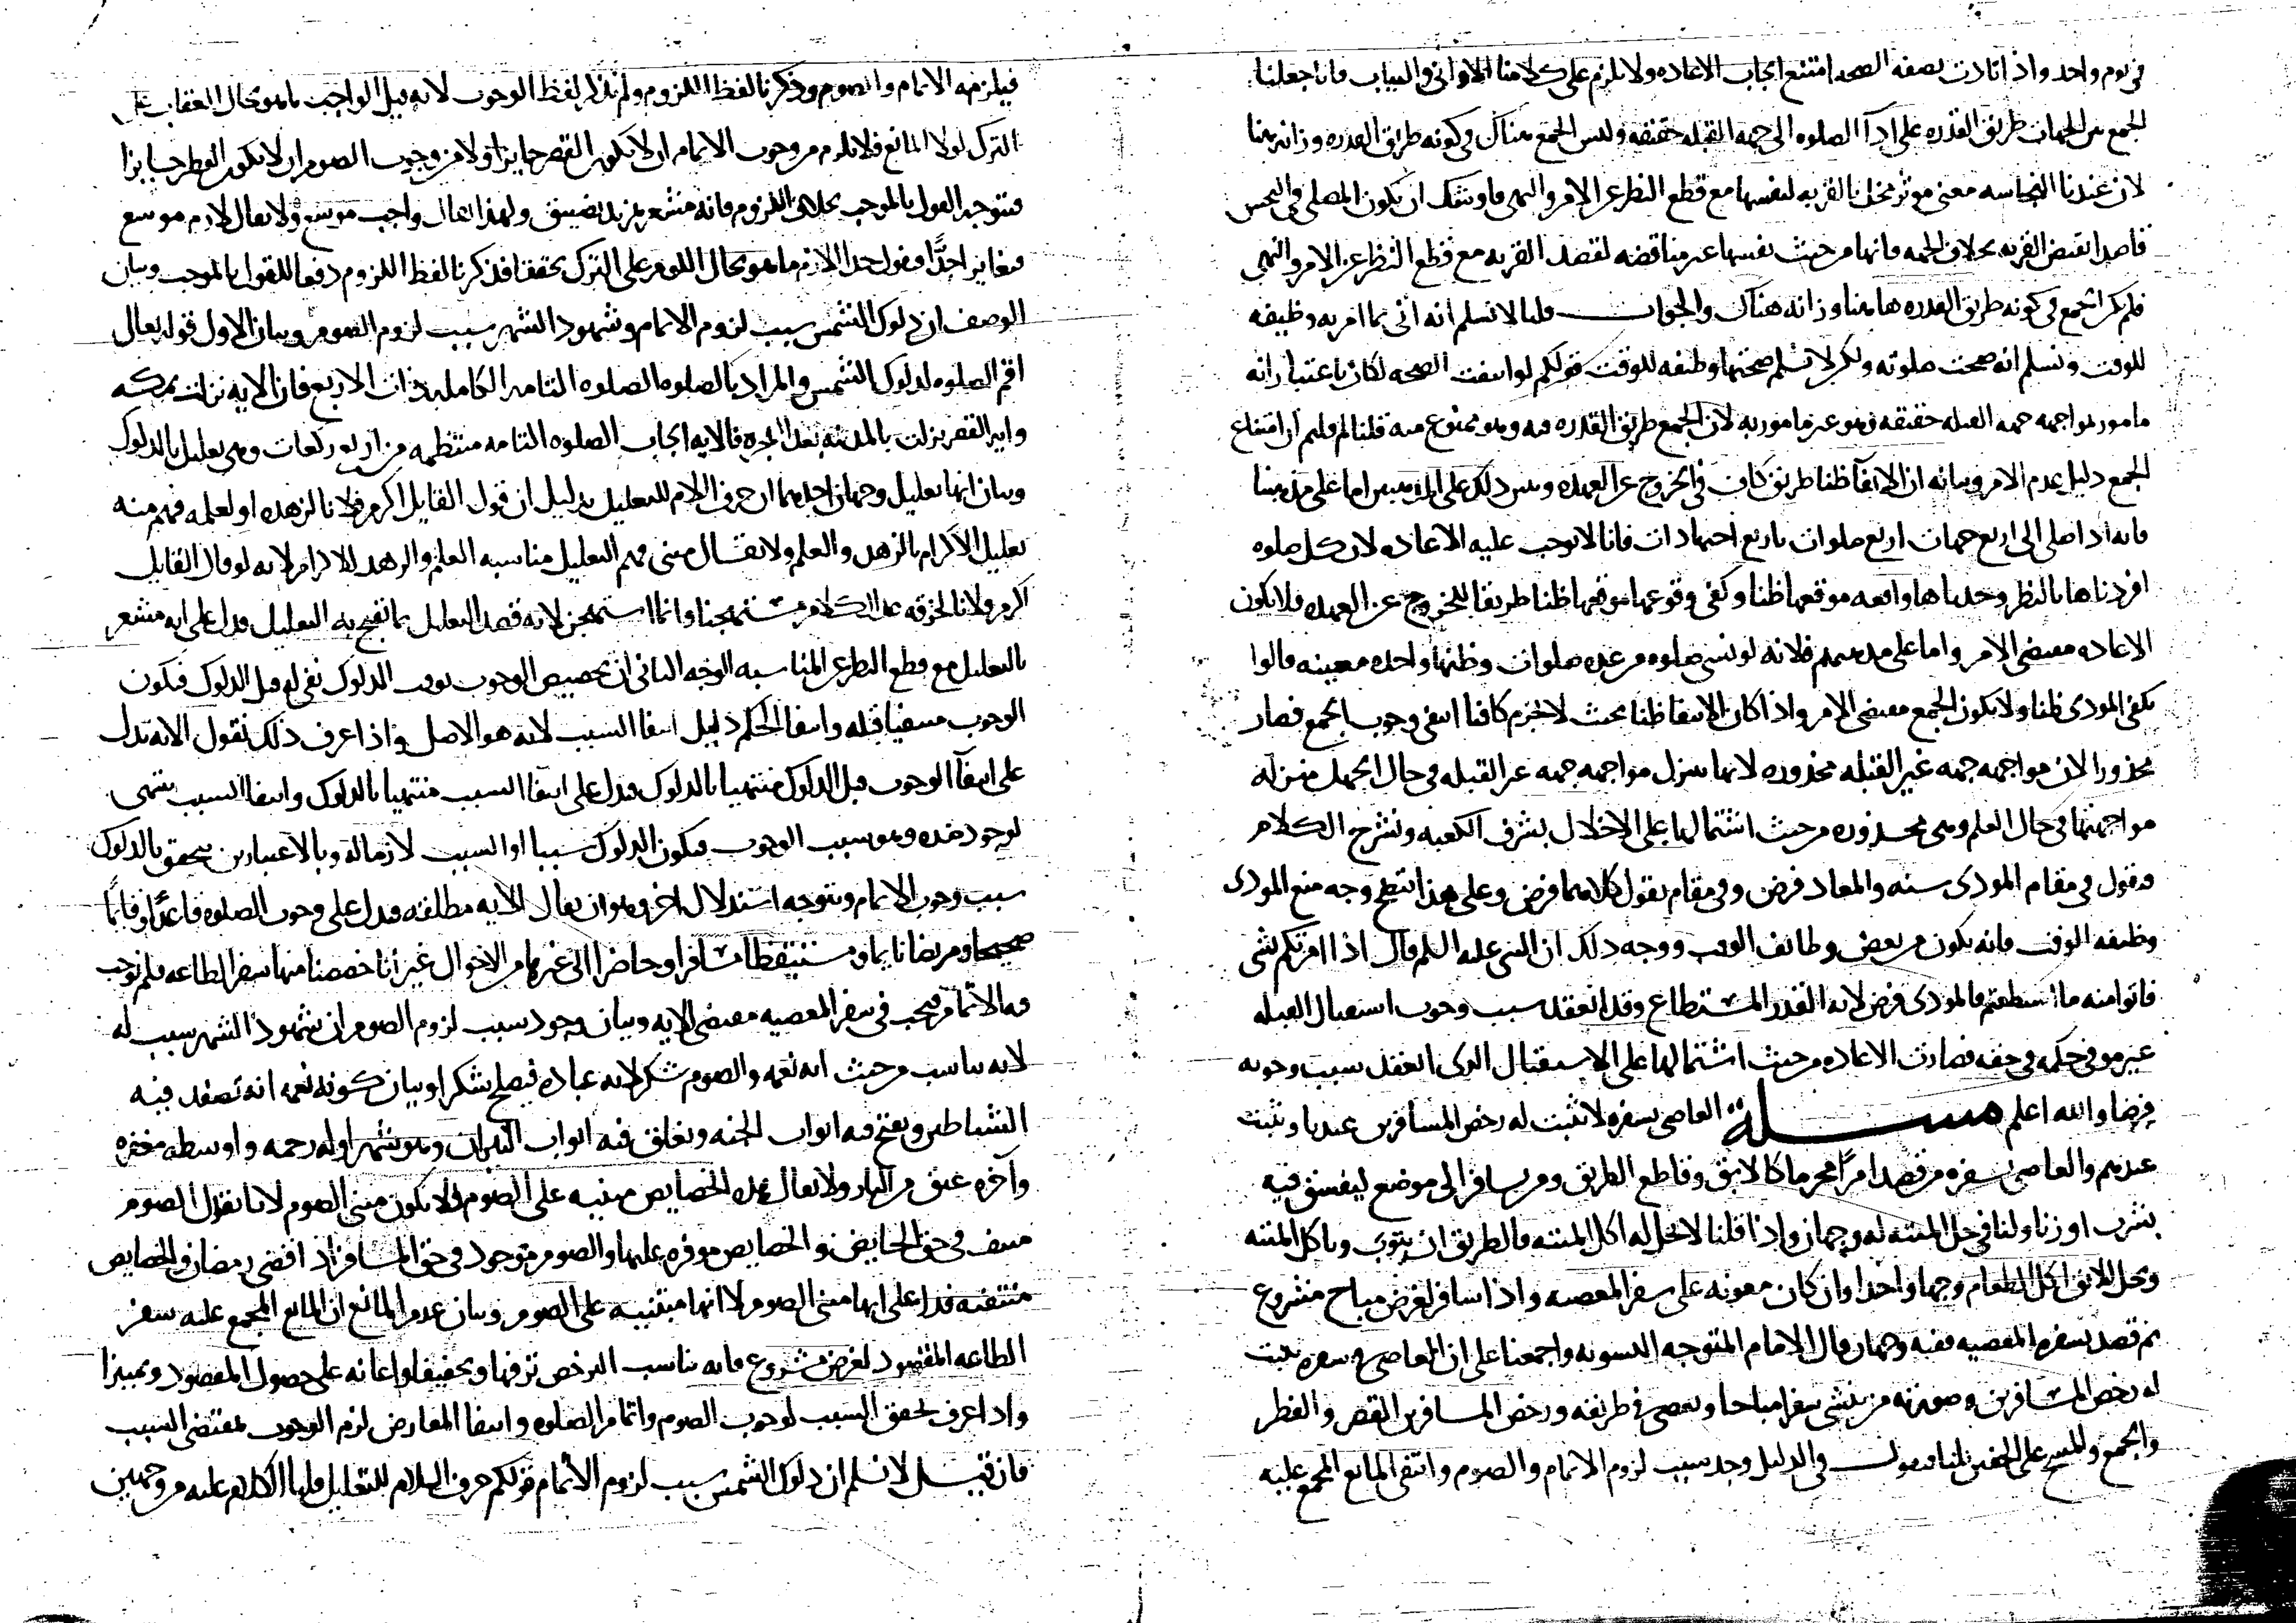 في يوم واحد واذا تادت بصفه الصحه امتنع ايجاب الاعاده ولا يلزم على كلامنا الاواني والثياب فانا جعلنا
الجمع بين الجهات طريق القدره على اداء الصلوه الى جهه القبله حقيقه وليس الجمع هناك في كونه طريق القدره وزانه هنا
لان عندنا النجاسه معنى موثر مخل بالقربه لنفسها مع قطع النظر عن الامر والنهي فاوشك ان يكون المصلي في النجس
قاصدا نقيض القربه بخلاف الجهه فانها من حيث نفسها غير مناقضه لقصد القربه مع قطع النظر عن الامر والنهي
فلم يكن الجمع في كونه طريق القدره هاهنا وزانه هناك والجواب قلنا لا نسلم انه اتى بما امر به وظيفه
للوقت ونسلم انه صحت صلوته ولكن لا نسلم صحتها وظيفه للوقت قولكم لو انتفت الصحه لكان باعتبار انه
مامور بمواجهه جهه القبله حقيقه وهو غير مامور به لان الجمع طريق القدره فيه وهو ممنوع منه قلنا لم قلتم ان امتناع
الجمع دليل عدم الامر وبيانه ان الاتيان ظنا طريق كاف في الخروج عن العهده وبين ذلك على المذهبين اما على مذهبنا
فانه اذا صلى الى اربع جهات اربع صلوات باربع اجتهادات فانا لا نوجب عليه الاعاده لان كل صلوه
افردناها بالنظر وجدناها واقعه موقعها ظنا وكفى وقوعها موقعها ظنا طريقا للخروج عن العهده فلا يكون
الاعاده مقتضى الامر واما على مذهبهم فلانه لو نسي صلوه من عده صلوات وظنها واحده معينه قالوا
يكفي المودى ظنا ولا يكون الجمع مقتضى الامر واذا كان الاتيان ظنا بحيث لا جزم كافيا انتفى وجوب الجمع فصار
محذورا لان مواجهه جهه غير القبله محذوره لانها تنزل مواجهه جهه غير القبله في حال الجهل منزله
مواجهتها في حال العلم وهي محذوره من حيث اشتمالها على الاخلال بشرف الكعبه ونشرح الكلام
ونقول في مقام المودى سنه والمعاد فرض وفي مقام نقول كلاهما فرض وعلى هذا ينطح وجه منع المودى
وظيفه الوقت فانه يكون من بعض وظائف الوقت ووجه ذلك ان النبي عليه السلم قال اذا امرتكم بشي
فاتوا منه ما استطعتم فالمودى فرض لانه القدر المستطاع وقد انعقد سبب وجوب استقبال القبله
غير موفى حكمه في حقه فصارت الاعاده من حيث اشتمالها على الاستقبال الذي انعقد سبب وجوبه
فرضا والله اعلم مسـلة العاصي بسفره لا تثبت له رخص المسافرين عندنا وتثبت
عندهم والعاصي بسفره من قصد امرا محرما كالابق وقاطع الطريق ومن يسافر الى موضع ليفسق فيه
بشرب او زنا ولنا في حل الميته له وجهان واذا قلنا لا تحل له اكل الميته فالطريق ان يتوب وياكل الميته
ويحل للابق اكل الطعام وجها واحدا وان كان معونه على سفر المعصيه واذا سافر لغرض مباح مشروع
ثم قصد بسفره المعصيه ففيه وجهان قال الامام المتوجه التسويه واجمعنا على ان العاصي في سفره تثبت
له رخص المسافرين وصورته من ينشي سفرا مباحا ويعصي في طريقه ورخص المسافرين القصر والفطر
والجمع والمسح على الخفين ثلثا فنقول في الدليل وجد سبب لزوم الاتمام والصوم وانتفى المانع المجمع عليه
فيلزمه الاتمام والصوم وذكرنا لفظ اللزوم ولم نذكر لفظ الوجوب لانه قيل الواجب ما هو بحال العقاب على
الترك لولا المانع فلا يلزم من وجوب الاتمام ان لا يكون القصر جايزا ولا من وجوب الصوم ان لا يكون الفطر جايزا
فيتوجه القول بالموجب بخلاف اللزوم فانه مشعر بمزيد تضييق ولهذا يقال واجب موسع ولا يقال لازم موسع
فتغايرا جدا ونقول حد اللازم ما هو بحال اللوم على الترك تحقيقا فذكرنا لفظ اللزوم دفعا للقول بالموجب وبيان
الوصف ان دلوك الشمس سبب لزوم الاتمام وشهود الشهر سبب لزوم الصوم وبيان الاول قوله تعالى
اقم الصلوه لدلوك الشمس والمراد بالصلوه الصلوه التامه الكامله ذات الاربع فان الايه نزلت بمكه
وايه القصر نزلت بالمدينه بعد الهجره فالايه ايجاب الصلوه التامه منتظمه من اربع ركعات وهي تعليل بالدلوك
وبيان انها تعليل وجهان احدهما ان حرف اللام للتعليل بدليل ان قول القايل اكرم فلانا لزهده او لعلمه فهم منه
تعليل الاكرام بالزهد والعلم ولا يقال مبنى فهم التعليل مناسبه العلم والزهد للاكرام لانه لو قال القايل
اكرم فلانا لخرقه عد الكلام مستهجنا وانما استهجن لانه قصد التعليل بما تقبح به التعليل فدل على انه مشعر
بالتعليل مع قطع النظر عن المناسبه الوجه الثاني ان تخصيص الوجوب بوقت الدلوك نفي له قبل الدلوك فيكون
الوجوب منتفيا قبله وانتفا الحكم دليل انتفا السبب لانه هو الاصل واذا عرف ذلك نقول الايه تدل
على انتفا الوجوب قبل الدلوك منتهيا بالدلوك فدل على انتفا السبب منتهيا بالدلوك وانتفا السبب ينتهي
لوجود ضده وهو سبب الوجوب فيكون الدلوك سببا او السبب لازما له وبالاعتبارين يتحقق بالدلوك
سبب وجوب الاتمام ويتوجه استدلال اخر وهو ان يقال الايه مطلقه فدل على وجوب الصلوه قاعدا وقائما
صحيحا ومريضا نايما ومستيقظا مسافرا وحاضرا الى غيرها من الاحوال غير انا خصصنا منها سفر الطاعه فلم نوجب
فيه الاتمام فيجب في سفر المعصيه مقتضى الايه وبيان وجود سبب لزوم الصوم ان شهود الشهر سبب له
لانه يناسب من حيث انه نعمه والصوم شكر لانه عباده فيصلح شكرا وبيان كونه نعمه انه تصفد فيه
الشياطين ويفتح فيه ابواب الجنه ويغلق فيه ابواب النيران وهو شهر اوله رحمه واوسطه مغفره
وآخره عتق من النار ولا يقال هذه الخصايص مبنيه على الصوم فلا يكون مبنى الصوم لانا نقول الصوم
منتف في حق الحايض والخصايص موفره عليها والصوم موجود في حق المسافر اذا قضى رمضان والخصايص
منتفيه فدل على انها مبنى الصوم لا انها مبتنيه على الصوم وبيان عدم المانع ان المانع المجمع عليه سفر
الطاعه المقصود لغرض مشروع فانه يناسب الترخص ترفها وتخفيفا واعانه على حصول المقصود وتمييزا
واذا عرف تحقق السبب لوجوب الصوم واتمام الصلوه وانتفا المعارض لزم الوجوب لمقتضى السبب
فان قيـل لا نسلم ان دلوك الشمس سبب لزوم الاتمام قولكم حرف اللام للتعليل قلنا الكلام عليه من وجهين